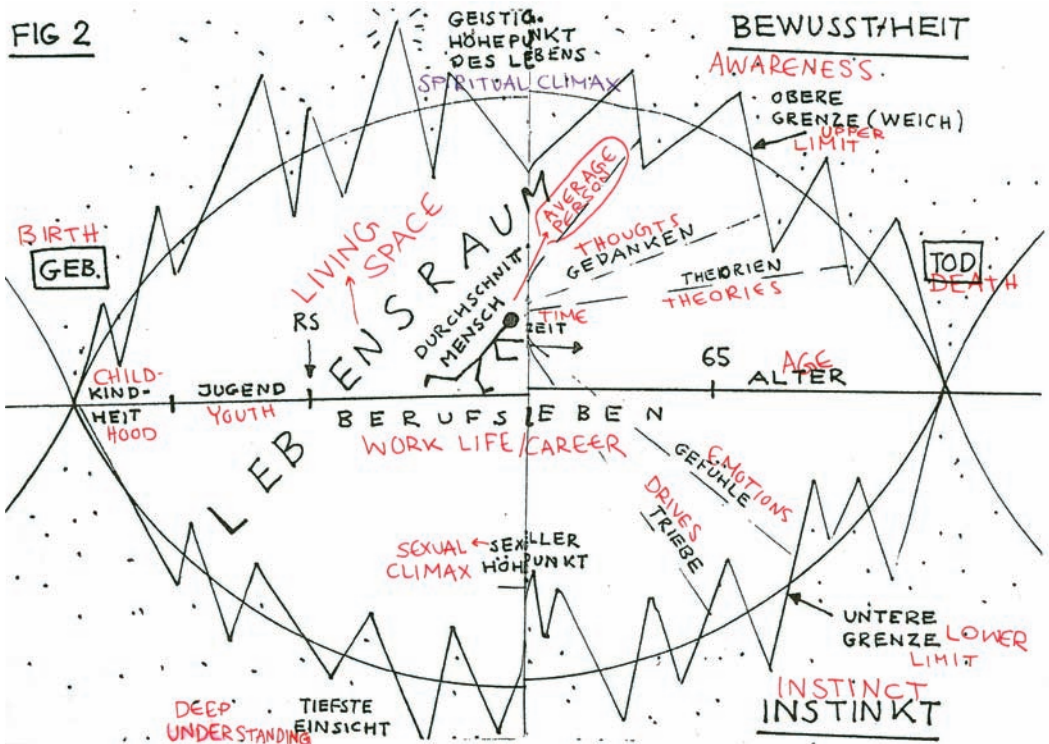 FIG 2
GEISTIG.
HÖHEPUNKT
DES LEBENS
SPIRITUAL CLIMAX
BEWUSSTHEIT
AWARENESS
OBERE
GRENZE (WEICH)
UPPER
LIMIT
BIRTH
GEB.
LIVING
SPACE
LEBENSRAUM
DURCHSCHNITT
MENSCH
AVERAGE
PERSON
THOUGTS
GEDANKEN
THEORIEN
THEORIES
TOD
DEATH
RS
TIME
ZEIT
65
AGE
ALTER
CHILD-
KIND-
HEIT
HOOD
JUGEND
YOUTH
BERUFSLEBEN
WORK LIFE/CAREER
EMOTIONS
GEFÜHLE
DRIVES
TRIEBE
SEXUAL
CLIMAX
SEXUELLER
HÖHPUNKT
UNTERE
GRENZE
LOWER
LIMIT
DEEP
UNDERSTANDING
TIEFSTE
EINSICHT
INSTINCT
INSTINKT